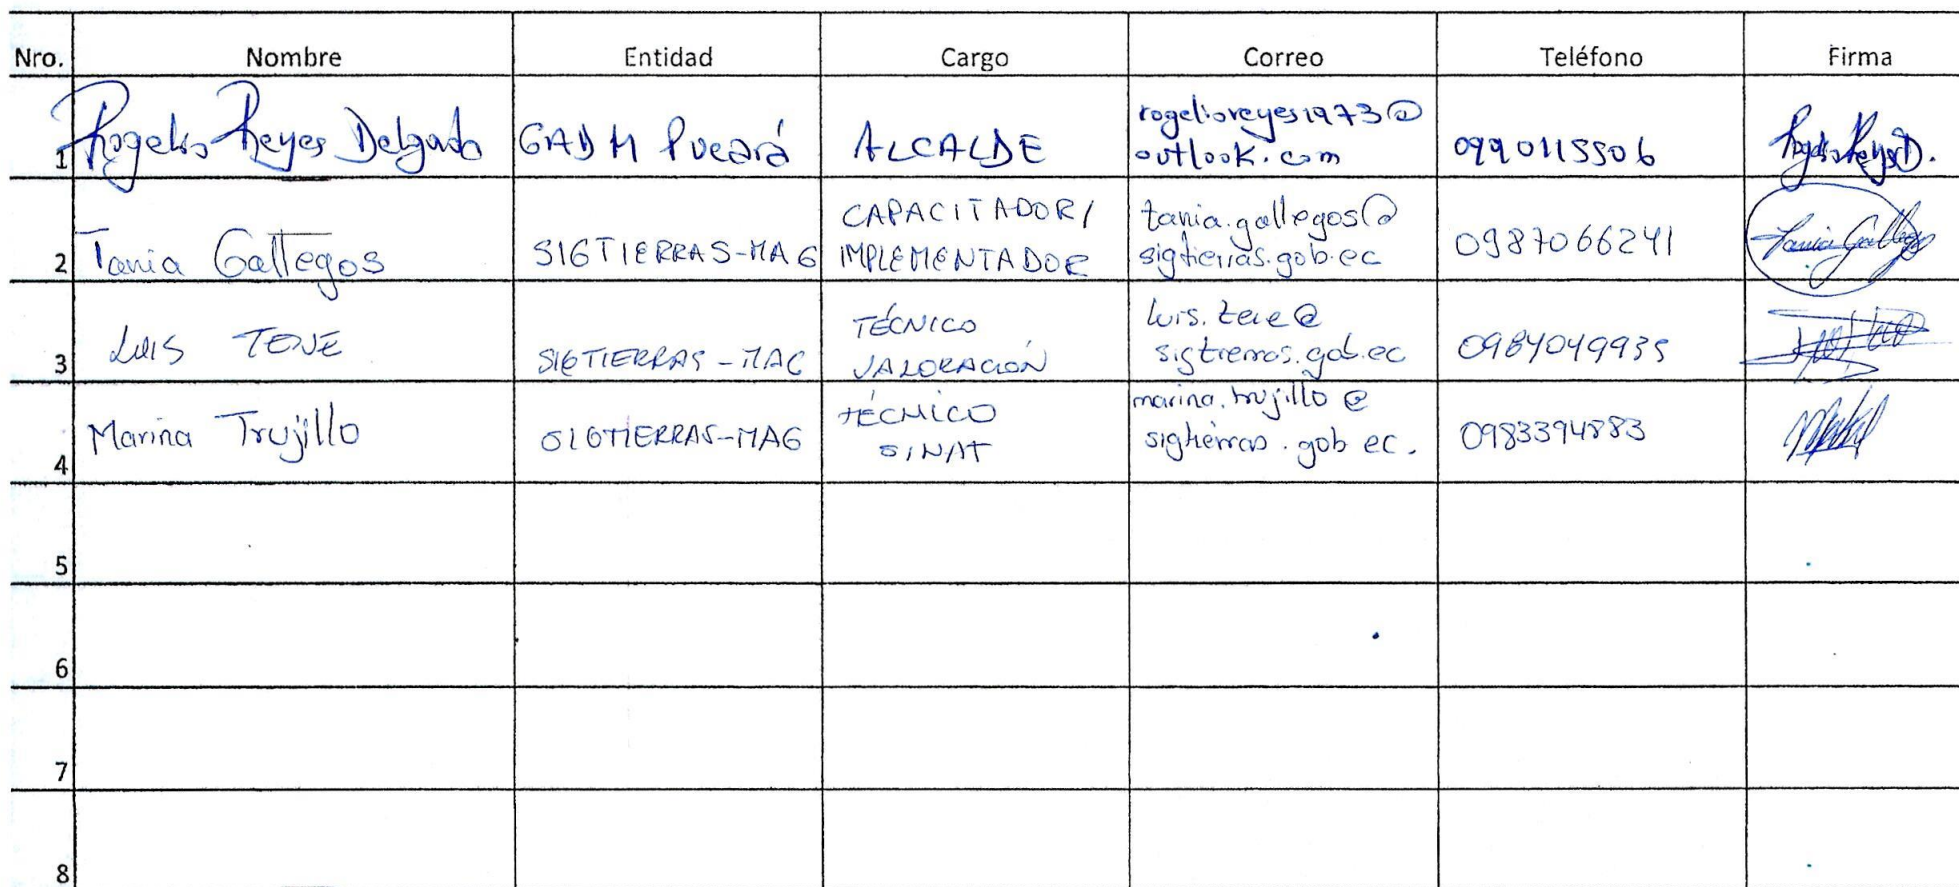 Nro. Nombre Entidad Cargo Correo Teléfono Firma
1 Rogelio Reyes Delgado GADM Pucará ALCALDE rogelioreyes1973@
outlook.com 0990115506 Rogelio Reyes D.
2 Tania Gallegos SIGTIERRAS-MAG CAPACITADOR/
IMPLEMENTADOR tania.gallegos@
sigtierras.gob.ec 0987066241 Tania Gallegos
3 LUIS TENE SIGTIERRAS-MAG TÉCNICO
VALORACIÓN luis.tene@
sigtierras.gob.ec 0984049935
4 Marina Trujillo SIGTIERRAS-MAG TÉCNICO
SINAT marina.trujillo@
sigtierras.gob.ec. 0983394883
5
6
7
8